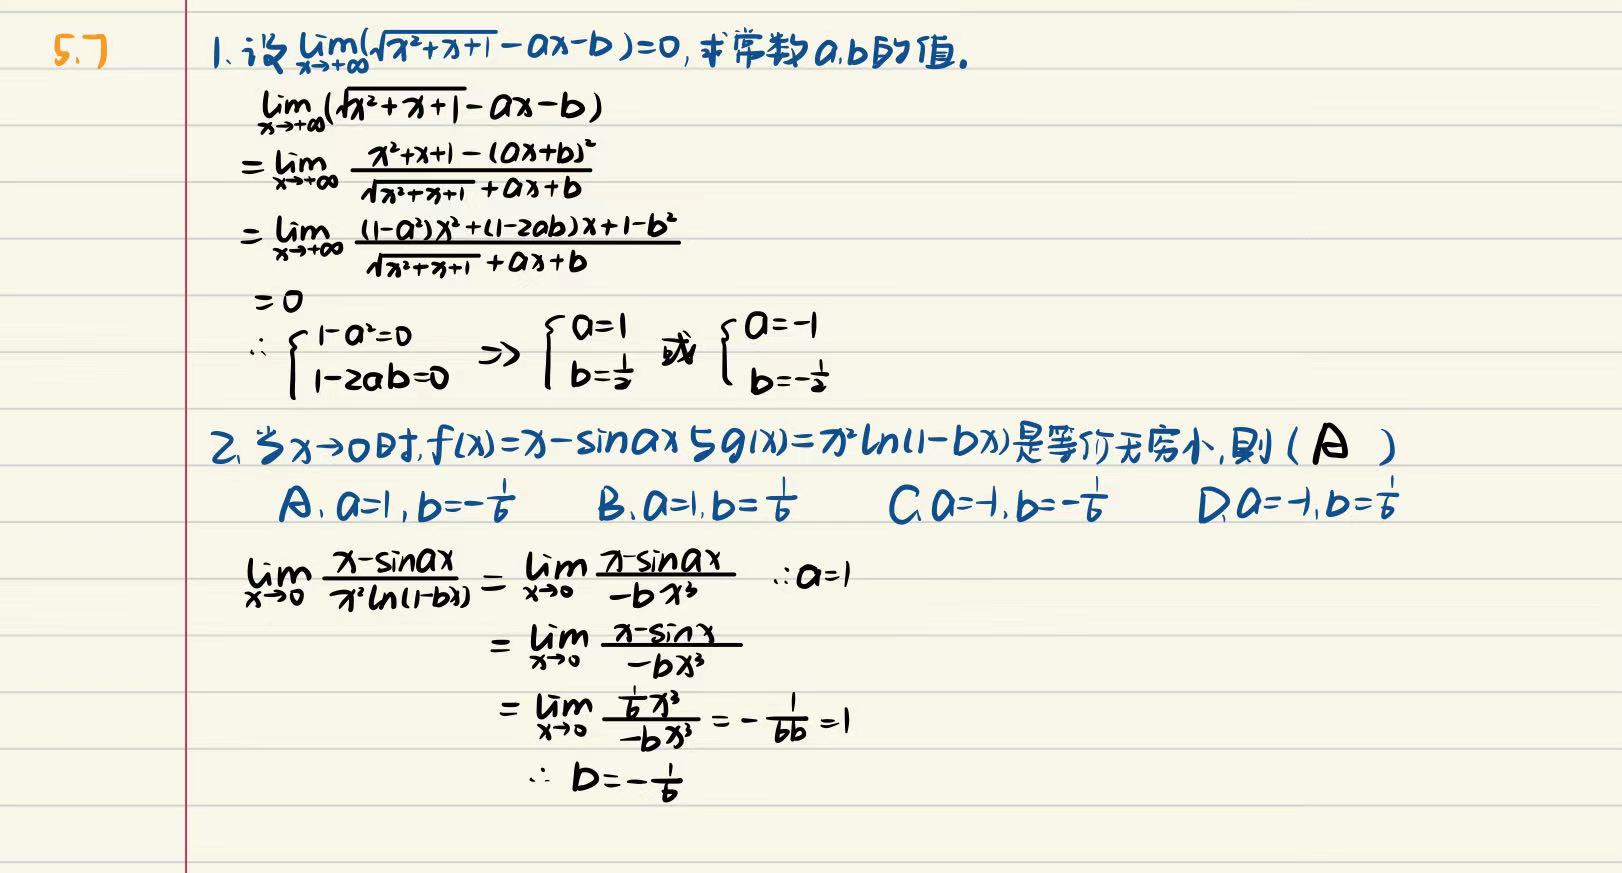 5.7
1. 设 lim_{x→+∞}(√(x²+x+1) - ax - b) = 0, 求常数 a.b 的值.
lim_{x→+∞}(√(x²+x+1) - ax - b)
= lim_{x→+∞} (x²+x+1-(ax+b)²)/(√(x²+x+1)+ax+b)
= lim_{x→+∞} ((1-a²)x²+(1-2ab)x+1-b²)/(√(x²+x+1)+ax+b)
= 0
∴ { 1-a²=0, 1-2ab=0 ⇒ { a=1, b=1/2 或 { a=-1, b=-1/2
2. 当 x→0时, f(x)=x-sinax 与 g(x)=x²ln(1-bx)是等价无穷小, 则 ( A )
A. a=1, b=-1/6 B. a=1, b=1/6 C. a=-1, b=-1/6 D. a=-1, b=1/6
lim_{x→0} (x-sinax)/(x²ln(1-bx)) = lim_{x→0} (x-sinax)/(-bx³) ∴a=1
= lim_{x→0} (x-sinx)/(-bx³)
= lim_{x→0} (1/6 x³)/(-bx³) = -1/(6b) = 1
∴ b=-1/6